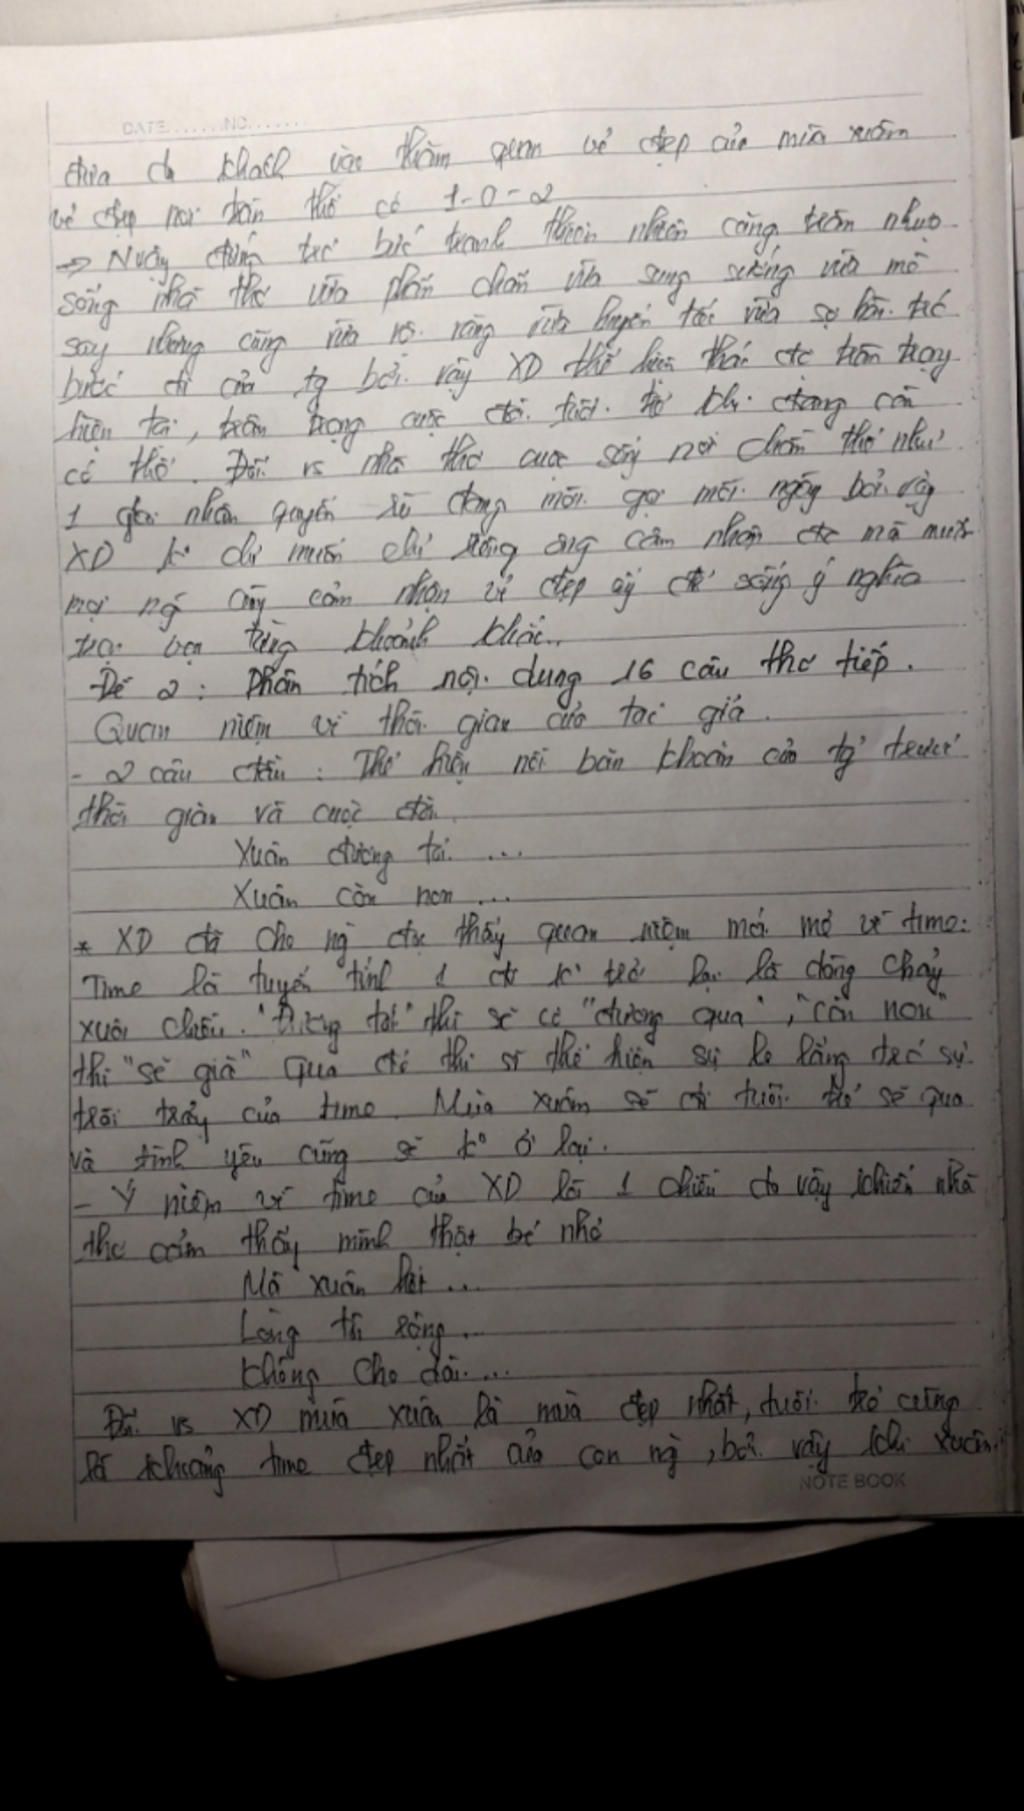 DATE.......NO.......
đưa du khách vào thăm quan vẻ đẹp của mùa xuân
vẻ đẹp nơi trần thế có 1-0-2
=> đứng trc bức tranh thiên nhiên căng tràn nhựa
sống nhà thơ vừa phấn chấn vừa sung sướng vừa mê
say nhưng cũng vừa vừa luyến tiếc vừa sợ hãi trc
bước đi của tg bởi vậy XD thể hiện thái độ trân trọng
hiện tại, trân trọng cuộc đời tuổi trẻ khi đang còn
có thể. Đối vs nhà thơ cuộc sống nơi chốn thế như
1 giai nhân quyến rũ đang mời gọi mỗi ngày bởi vậy
XD k° chỉ muốn chỉ riêng ông cảm nhận đc mà muốn
mọi ng cùng cảm nhận vẻ đẹp ấy để sống ý nghĩa
trọn vẹn từng khoảnh khắc..
Đề 2: Phân tích nội dung 16 câu thơ tiếp.
Quan niệm về thời gian của tác giả.
- 2 câu đầu: Thể hiện nỗi băn khoăn của tg trước
thời gian và cuộc đời.
Xuân đương tới ...
Xuân còn non ...
* XD đã cho ng đọc thấy quan niệm mới mẻ về time:
Time là tuyến tính 1 đi k° trở lại là dòng chảy
xuôi chiều. "Đương tới" thì sẽ có "đương qua", "còn non"
thì "sẽ già" Qua đó thi sĩ thể hiện sự lo lắng trc sự
trôi trảy của time. Mùa xuân sẽ đi tuổi trẻ sẽ qua
và tình yêu cũng sẽ k° ở lại.
- Ý niệm về time của XD là 1 chiều do vậy khiến nhà
thơ cảm thấy mình thật bé nhỏ
Mà xuân hết ...
Lòng tôi rộng ...
Không cho dài ...
Đối vs XD mùa xuân là mùa đẹp nhất, tuổi trẻ cũng
là khoảng time đẹp nhất của con ng, bởi vậy khi xuân
NOTE BOOK